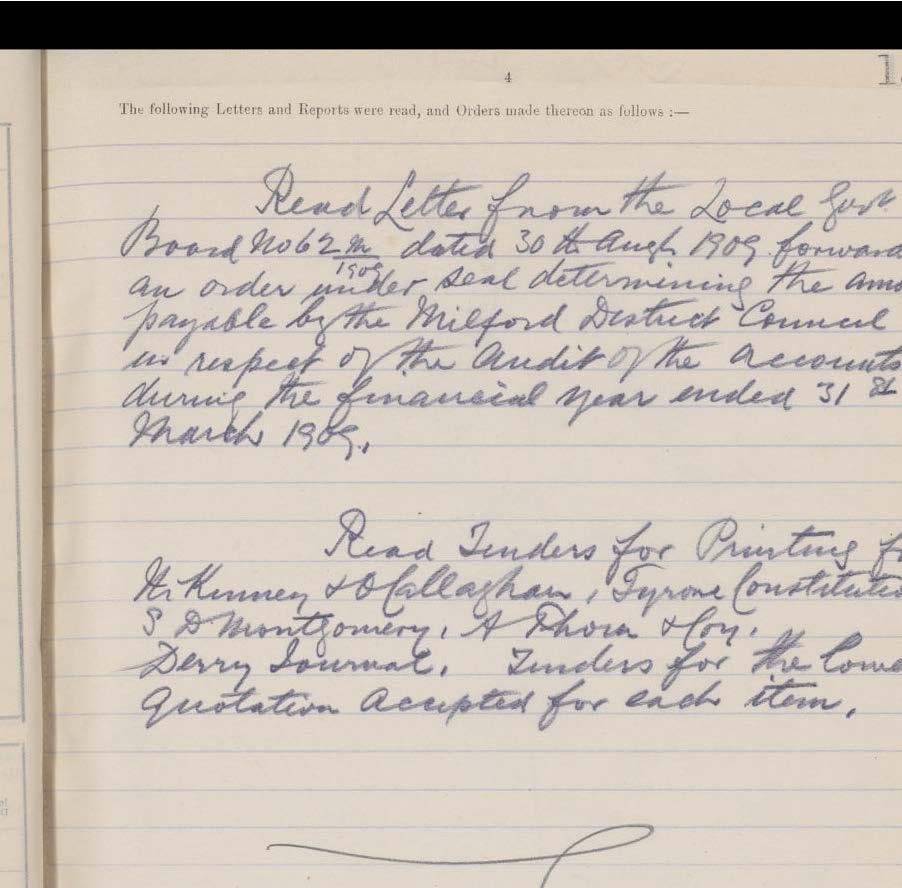 4
The following Letters and Reports were read, and Orders made thereon as follows :—
Read Letter from the Local Govt
Board No 62 m/1909 dated 30th Augt. 1909 forward
an order under seal determining the amo
payable by the Milford District Council
in respect of the Audit of the accounts
during the financial year ended 31st
March 1909.
Read Tenders for Printing f
& O'Callaghan, Tyrone Constitutio
S D Montgomery, A Thom & Coy.
Derry Journal. Tenders for the lowe
Quotation Accepted for each item.